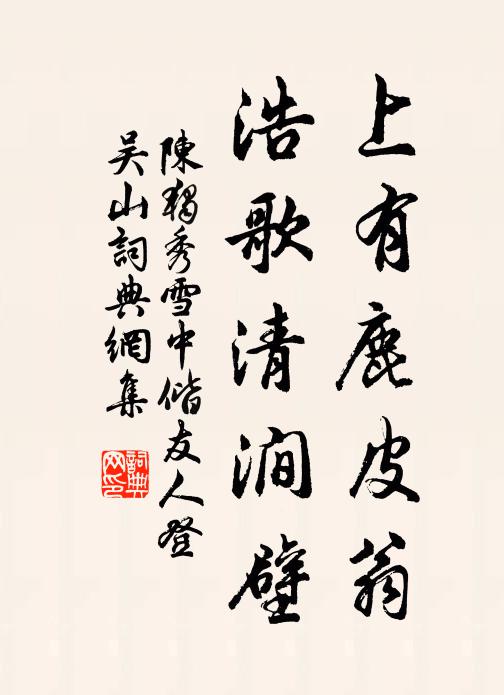 上有鹿皮翁
浩歌清澗壁
陳獨秀雪中偕友人登
吴山詞典網集
詞典網印